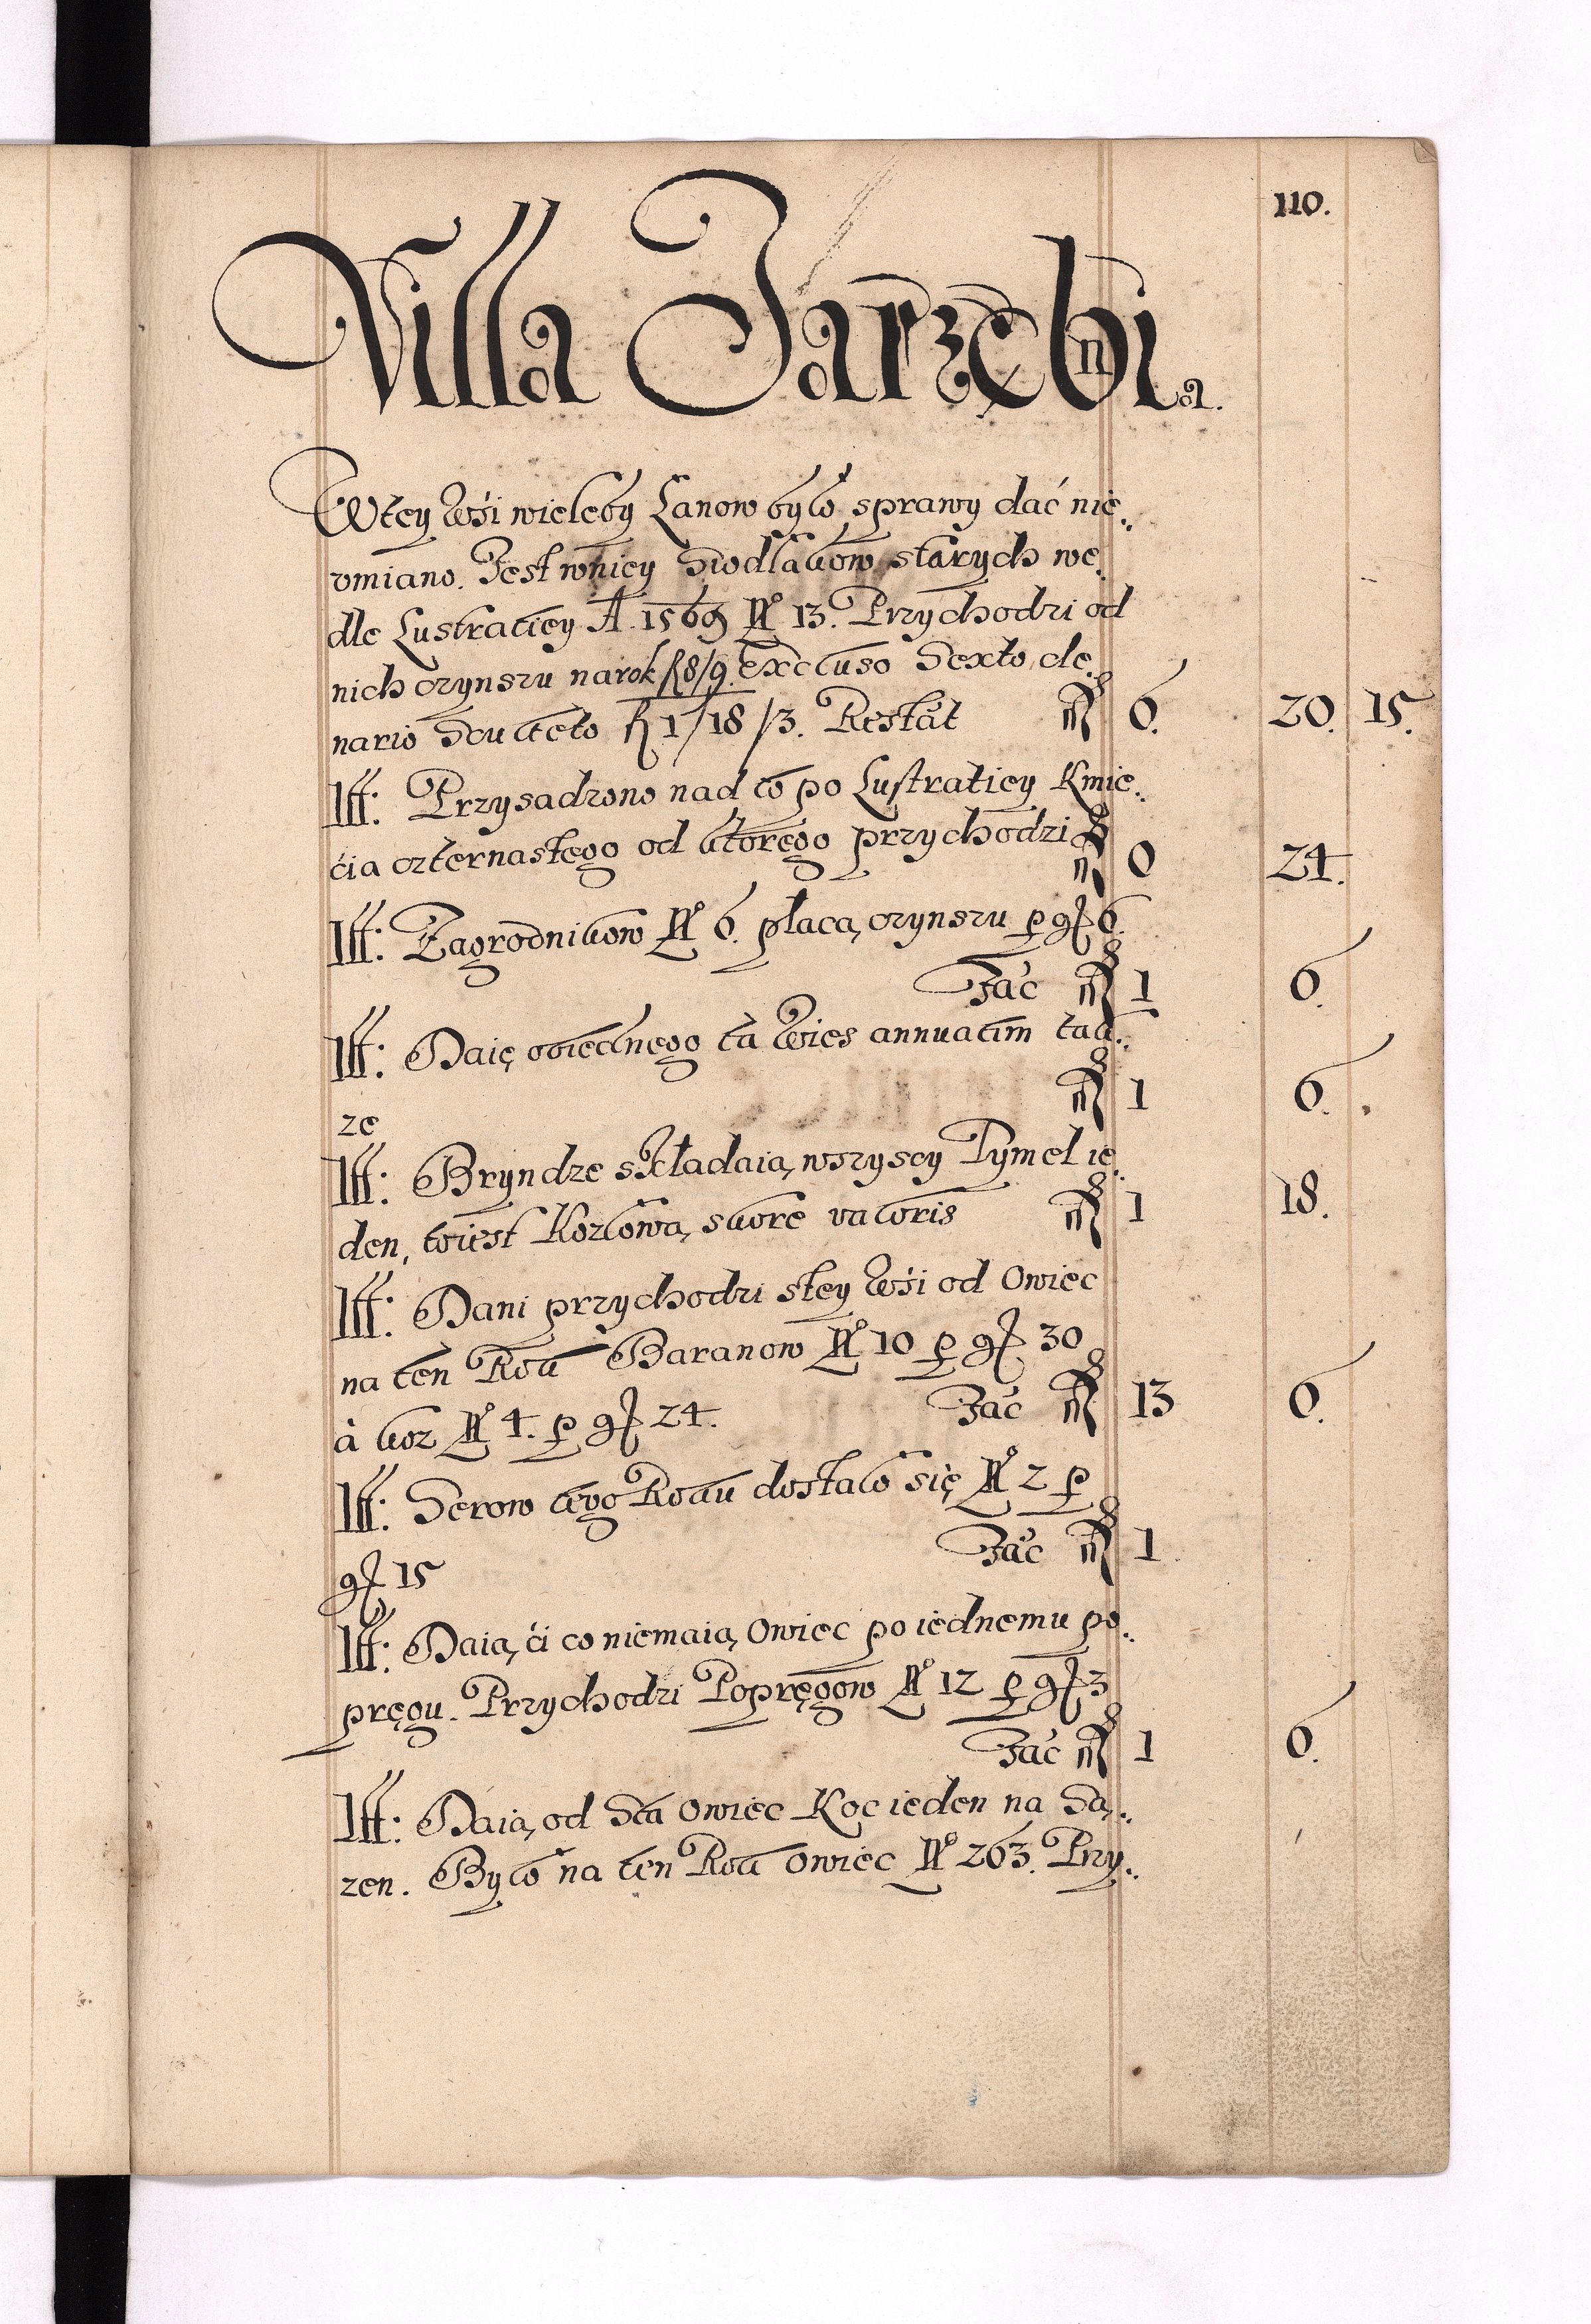 110.
Villa Jarzębina.
Wtey Wśi wieleby Łanow było sprawy dać nie..
umiano. Jest wniey Siodlakow starych we.
dle Lustratiey A. 1569 No 13. Przychodzi od
nich czynszu narok fl 8/9. Excluso Sexto de.
nario Sculteto fl 1/18/3. Restat fl 6. 20. 15.
Itt: Przysadzono nad to po Lustratiey Kmie..
ćia czternastego od ktorego przychodzi fl 0 24.
Itt: Zagrodnikow No 6. płacą czynszu p gr 6.
Zác fl 1 6.
Itt: Daię obiednego ta Wies annuatim tak..
że fl 1 6.
Itt: Bryndze składaią wszyscy Tymel ie.
den, toiest Kozłową skore valoris fl 1 18.
Itt: Dani przychodzi stey Wśi od Owiec
na ten Rok Baranow No 10 p gr 30
à koz No 4. p gr 24. Zác fl 13 6.
Itt: Serow tego Roku dostało się No 2 p
gr 15 Zác fl 1
Itt: Daią ći co niemaią Owiec po iednemu po..
pręgu. Przychodzi Popręgow No 12 p gr 3
Zác fl 1 6.
Itt: Daią od Sta Owiec Koc ieden na Są..
zen. Było na ten Rok Owiec No 263. Przy..